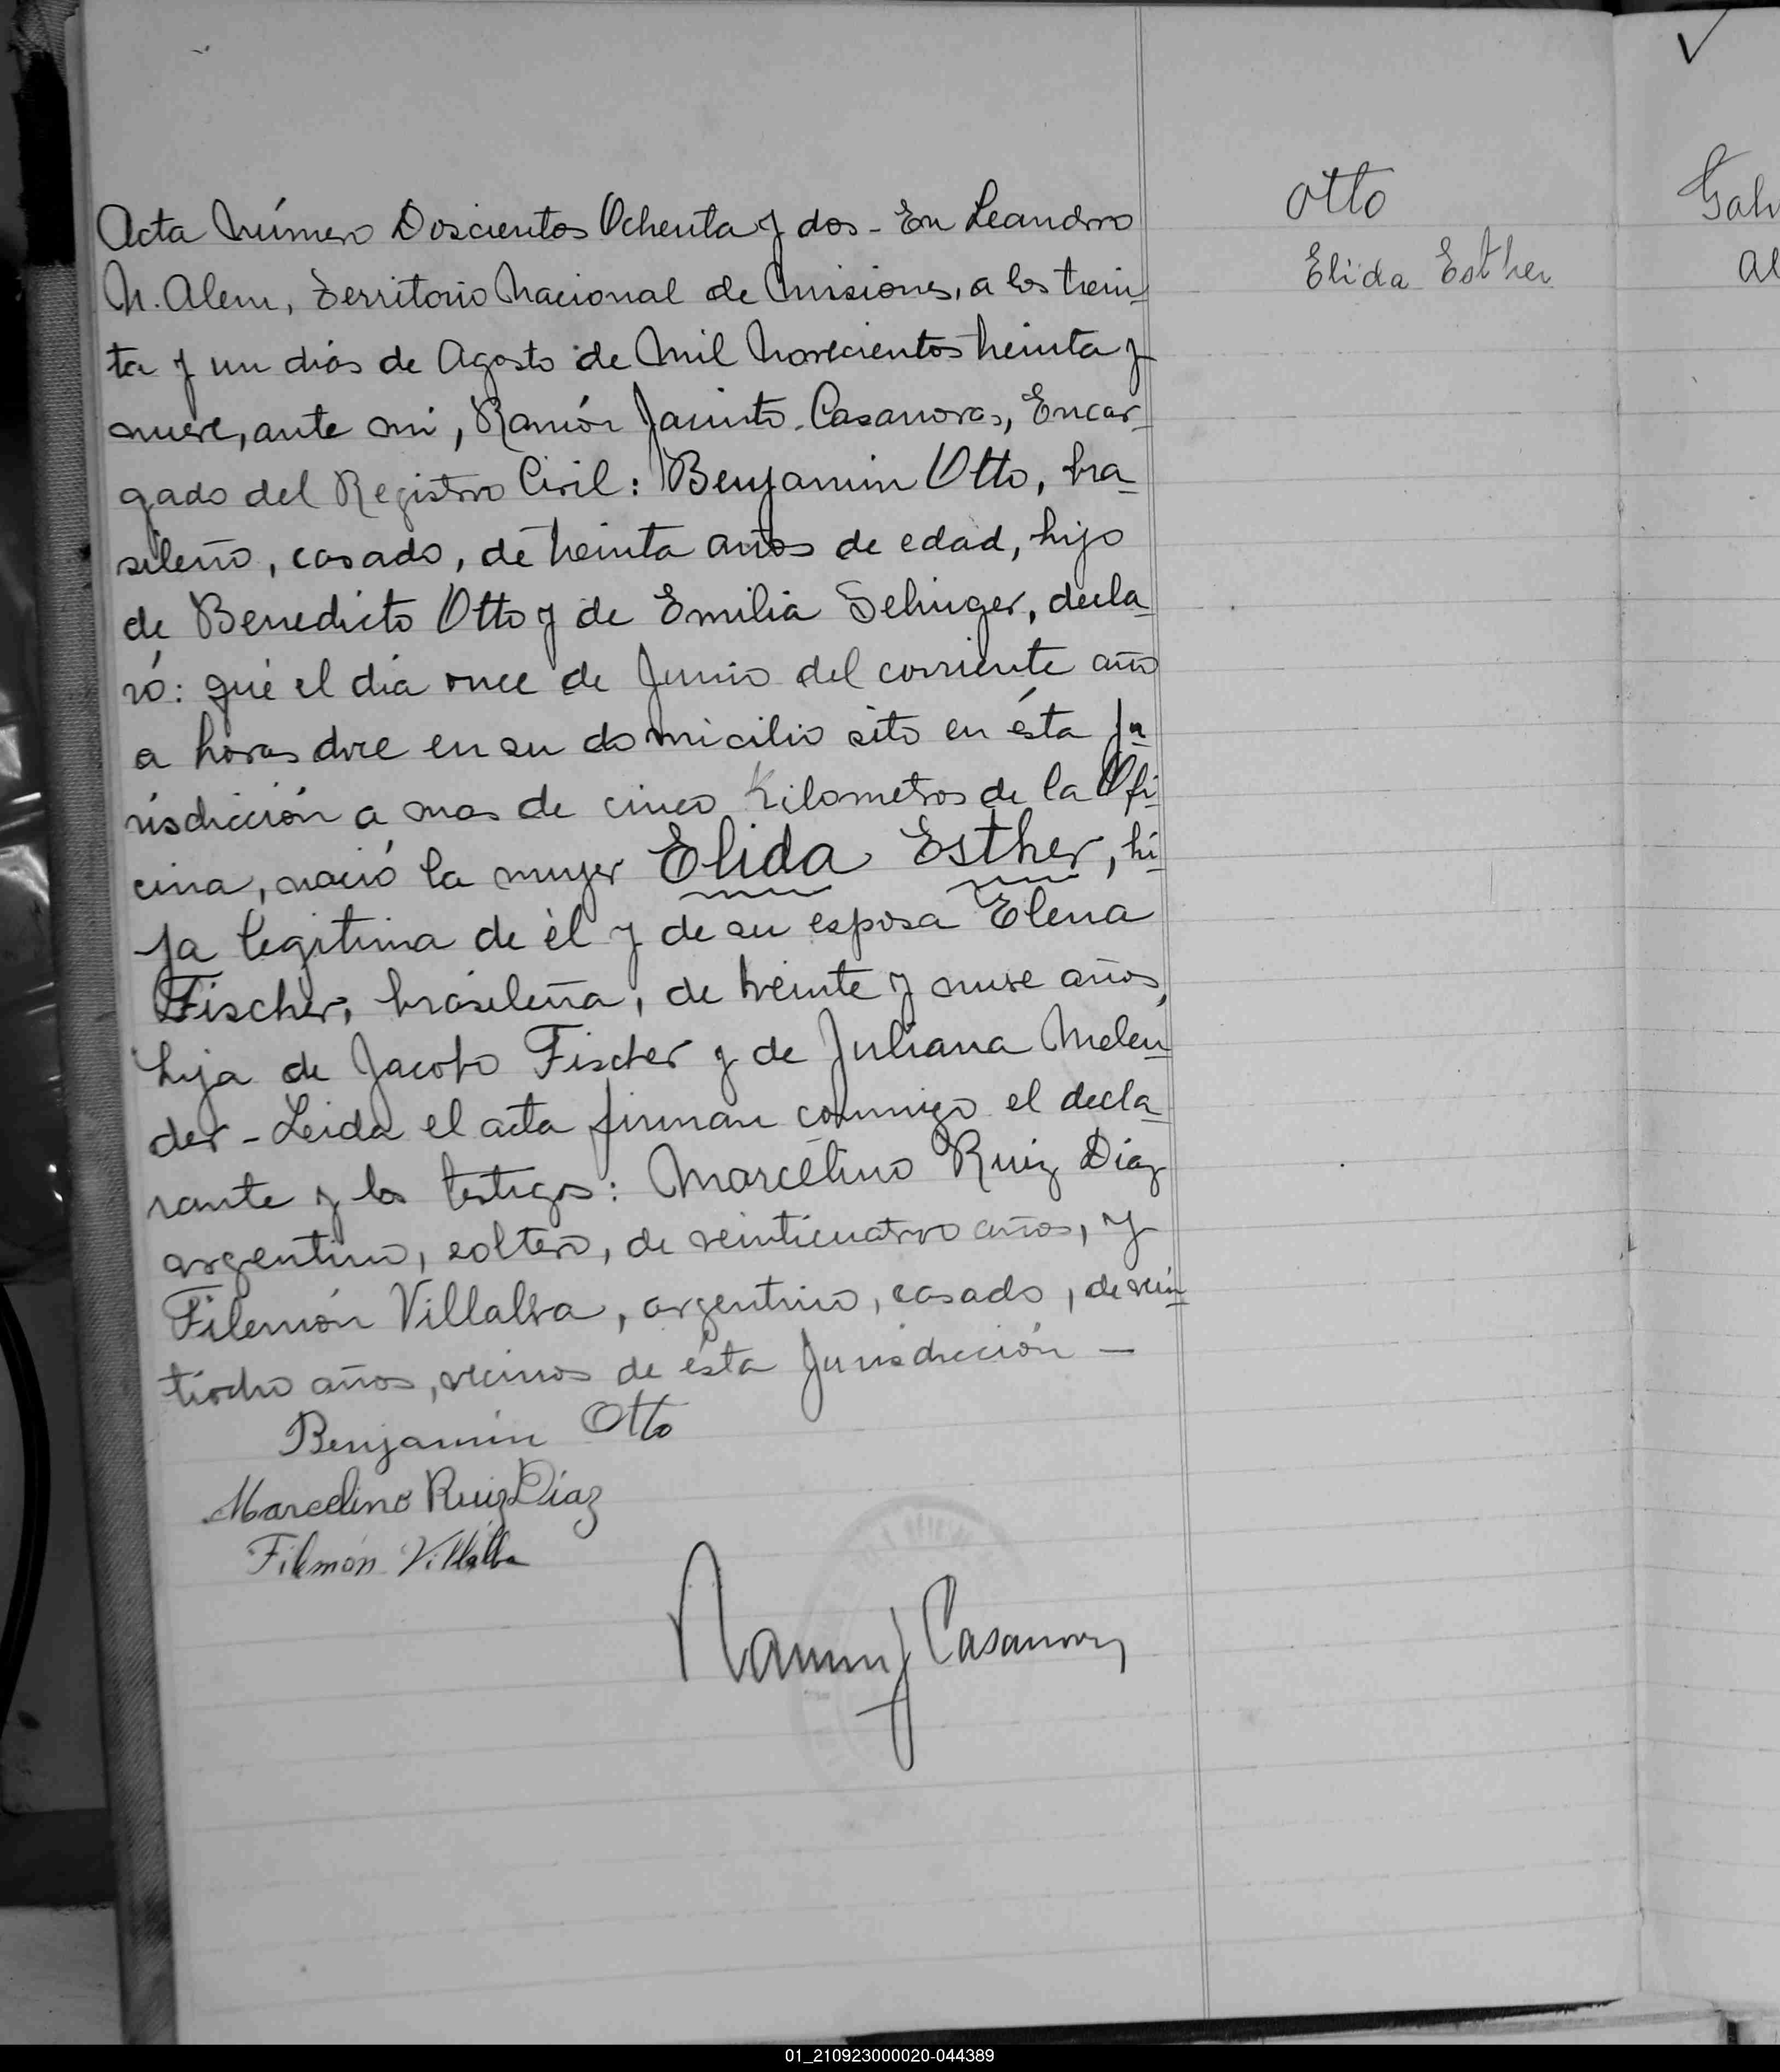 Acta Número Doscientos Ochenta y dos - En Leandro
N. Alem, Territorio Nacional de Misiones, a los trein-
ta y un dias de Agosto de Mil Novecientos treinta y
nueve, ante mi, Ramón Jacinto Casanovas, Encar-
gado del Registro Civil: Benjamin Otto, bra-
sileño, casado, de treinta años de edad, hijo
de Benedicto Otto y de Emilia Selinger, decla-
ró: que el dia once de Junio del corriente año
a horas doce en su domicilio sito en ésta Ju-
risdicción a mas de cinco Kilometros de la Ofi-
cina, nació la mujer Elida Esther, hi-
ja legitima de él y de su esposa Elena
Fischer, brasileña, de veinte y nueve años,
hija de Jacobo Fischer y de Juliana Melen-
der - Leida el acta firman conmigo el decla-
rante y los testigos: Marcelino Ruiz Diaz
argentino, soltero, de veinticuatro años, y
Filemón Villalva, argentino, casado, de vein-
tiocho años, vecinos de ésta Jurisdicción -
Benjamin Otto
Marcelino Ruiz Díaz
Filemón Villalba
Ramon J Casanovas
Otto
Elida Esther
Gal
Al
01_210923000020-044389